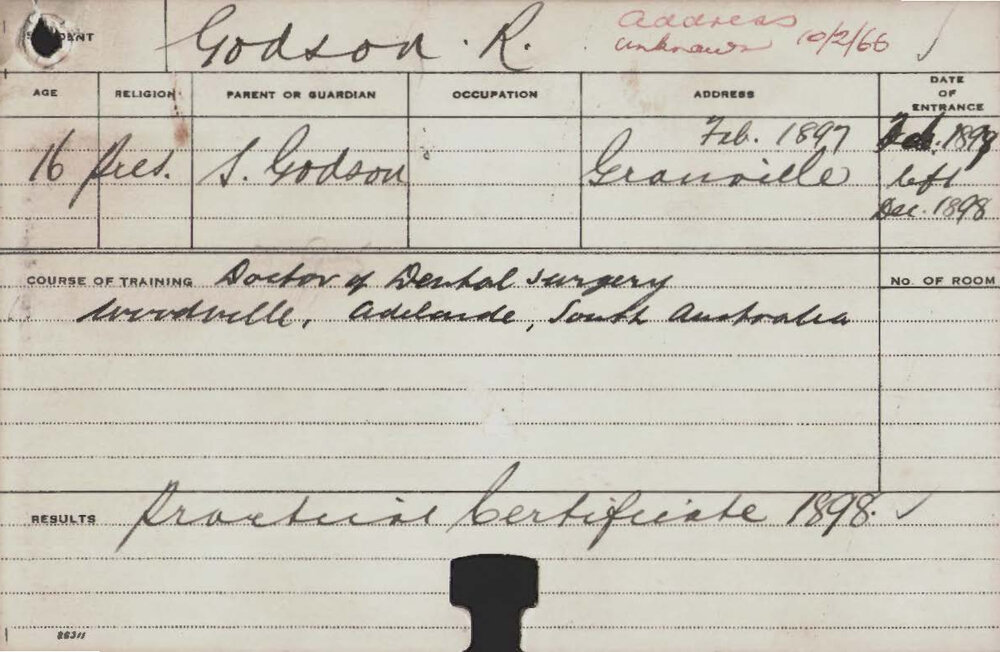 STUDENT Godson. R. Address
unknown 10/2/66
AGE RELIGION PARENT OR GUARDIAN OCCUPATION ADDRESS DATE OF ENTRANCE
Feb. 1897 Feb. 1897
16 Pres. S. Godson Granville left
Dec. 1898
COURSE OF TRAINING Doctor of Dental Surgery NO. OF ROOM
Woodville, Adelaide, South Australia
RESULTS Practical Certificate 1898.
86311